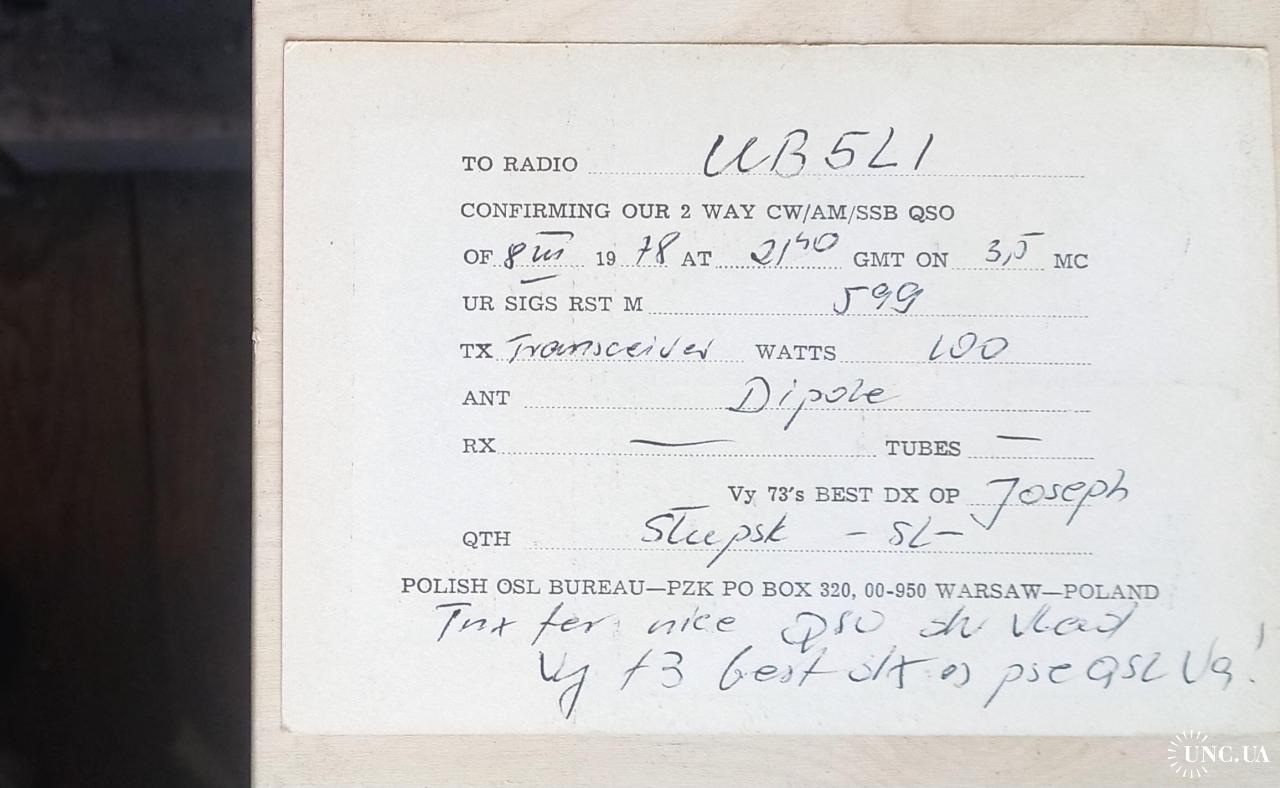 TO RADIO UB5LI
CONFIRMING OUR 2 WAY CW/AM/SSB QSO
OF 8 III 1978 AT 21⁴⁰ GMT ON 3,5 MC
UR SIGS RST M 599
TX Transceiver WATTS 100
ANT Dipole
RX — TUBES —
Vy 73's BEST DX OP Joseph
QTH Słupsk - SL -
POLISH QSL BUREAU—PZK PO BOX 320, 00-950 WARSAW—POLAND
Tnx fer nice QSO dr Vlad
Vy 73 best dx es pse QSL Va!
UNC.UA